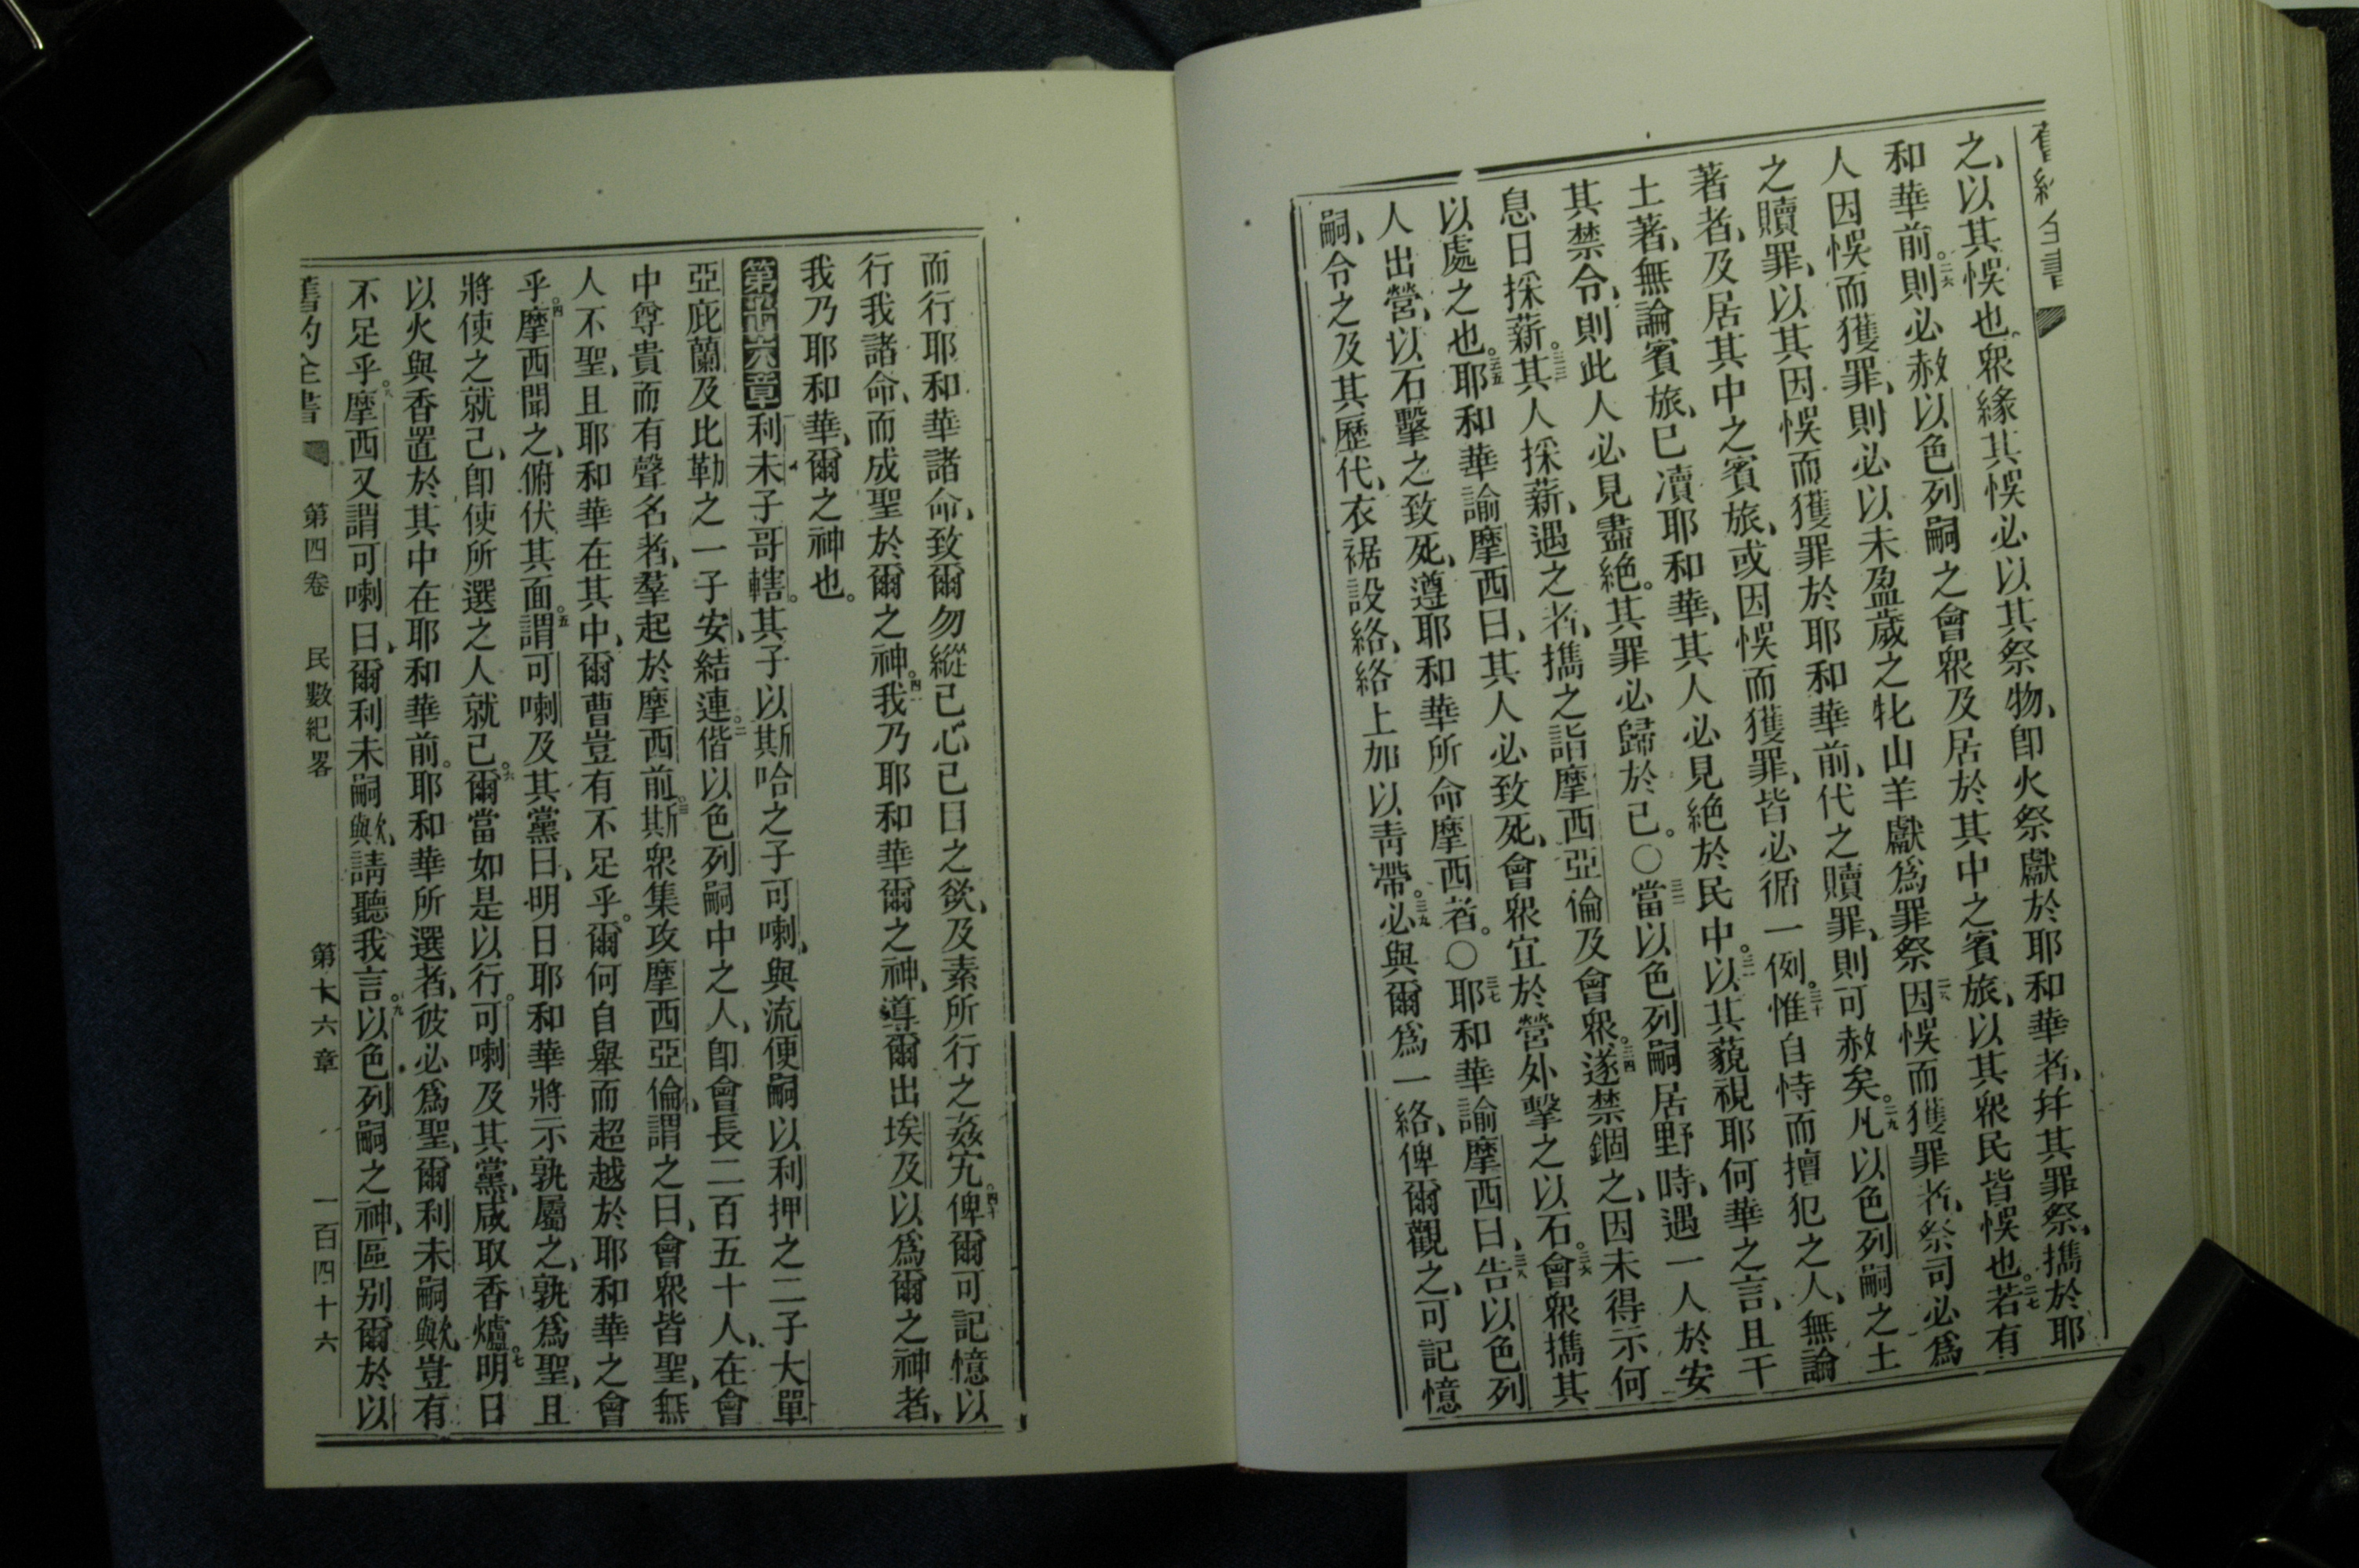 舊約全書
之、以其悞也、衆緣其悞必以其祭物、卽火祭獻於耶和華者、幷其罪祭、攜於耶
和華前。二六則必赦以色列嗣之會衆及居於其中之賓旅、以其衆民皆悞也。二七若有
人因悞而獲罪、則必以未盈歲之牝山羊獻爲罪祭二八因悞而獲罪者、祭司必爲
之贖罪、以其因悞而獲罪於耶和華前、代之贖罪、則可赦矣。二九凡以色列嗣之土
著者、及居其中之賓旅、或因悞而獲罪、皆必循一例。三十惟自恃而擅犯之人、無論
土著、無論賓旅、已瀆耶和華、其人必見絕於民中。三一以其藐視耶何華之言、且干
其禁令、則此人必見盡絕。其罪必歸於己。〇三二當以色列嗣居野時、遇一人於安
息日採薪。三三其人採薪、遇之者、攜之詣摩西亞倫及會衆。三四遂禁錮之、因未得示何
以處之也。三五耶和華諭摩西曰、其人必致死、會衆宜於營外擊之以石。三六會衆攜其
人出營、以石擊之致死、遵耶和華所命摩西者。〇三七耶和華諭摩西曰、三八告以色列
嗣、令之及其歷代、衣裾設綌、綌上加以靑帶。三九必與爾爲一綌、俾爾觀之、可記憶
而行耶和華諸命、致爾勿縱己心己目之欲、及素所行之姦宄。四十俾爾可記憶以
行我諸命、而成聖於爾之神。四一我乃耶和華爾之神、導爾出埃及以爲爾之神者、
我乃耶和華、爾之神也。
第十六章利未子哥轄。其子以斯哈之子可喇、與流便嗣以利押之二子大單
亞庇蘭及比勒之一子安、結連。二偕以色列嗣中之人、卽會長二百五十人、在會
中尊貴而有聲名者、羣起於摩西前。三斯衆集攻摩西亞倫、謂之曰、會衆皆聖、無
人不聖、且耶和華在其中、爾曹豈有不足乎。爾何自舉而超越於耶和華之會
乎。四摩西聞之、俯伏其面。五謂可喇及其黨曰、明日耶和華將示孰屬之、孰爲聖、且
將使之就己、卽使所選之人就己。六爾當如是以行。可喇及其黨、咸取香爐。七明日
以火與香置於其中在耶和華前。耶和華所選者、彼必爲聖、爾利未嗣歟、豈有
不足乎。八摩西又謂可喇曰、爾利未嗣歟、請聽我言。九以色列嗣之神、區别爾於以
舊約全書 第四卷 民數紀畧 第十六章 一百四十六